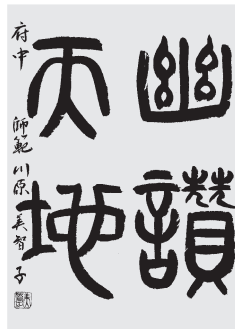 幽讃
天地
府中 師範 川原美智子